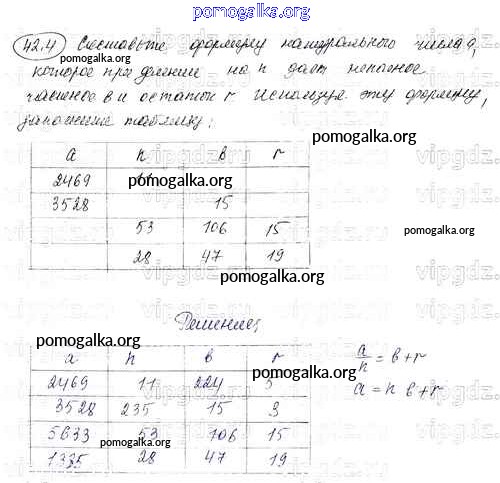 pomogalka.org
42.4 Составьте формулу натурального числа а,
которое при делении на n дает неполное
частное в и остаток r. Используя эту формулу,
заполните таблицу:
pomogalka.org
a n в r
2469
3528 15
53 106 15
28 47 19
pomogalka.org
Решение:
pomogalka.org
a n в r
2469 11 224 5
3528 235 15 3
5633 53 106 15
1335 28 47 19
a/n = в + r
a = n в + r
pomogalka.org
vipgdz.ru